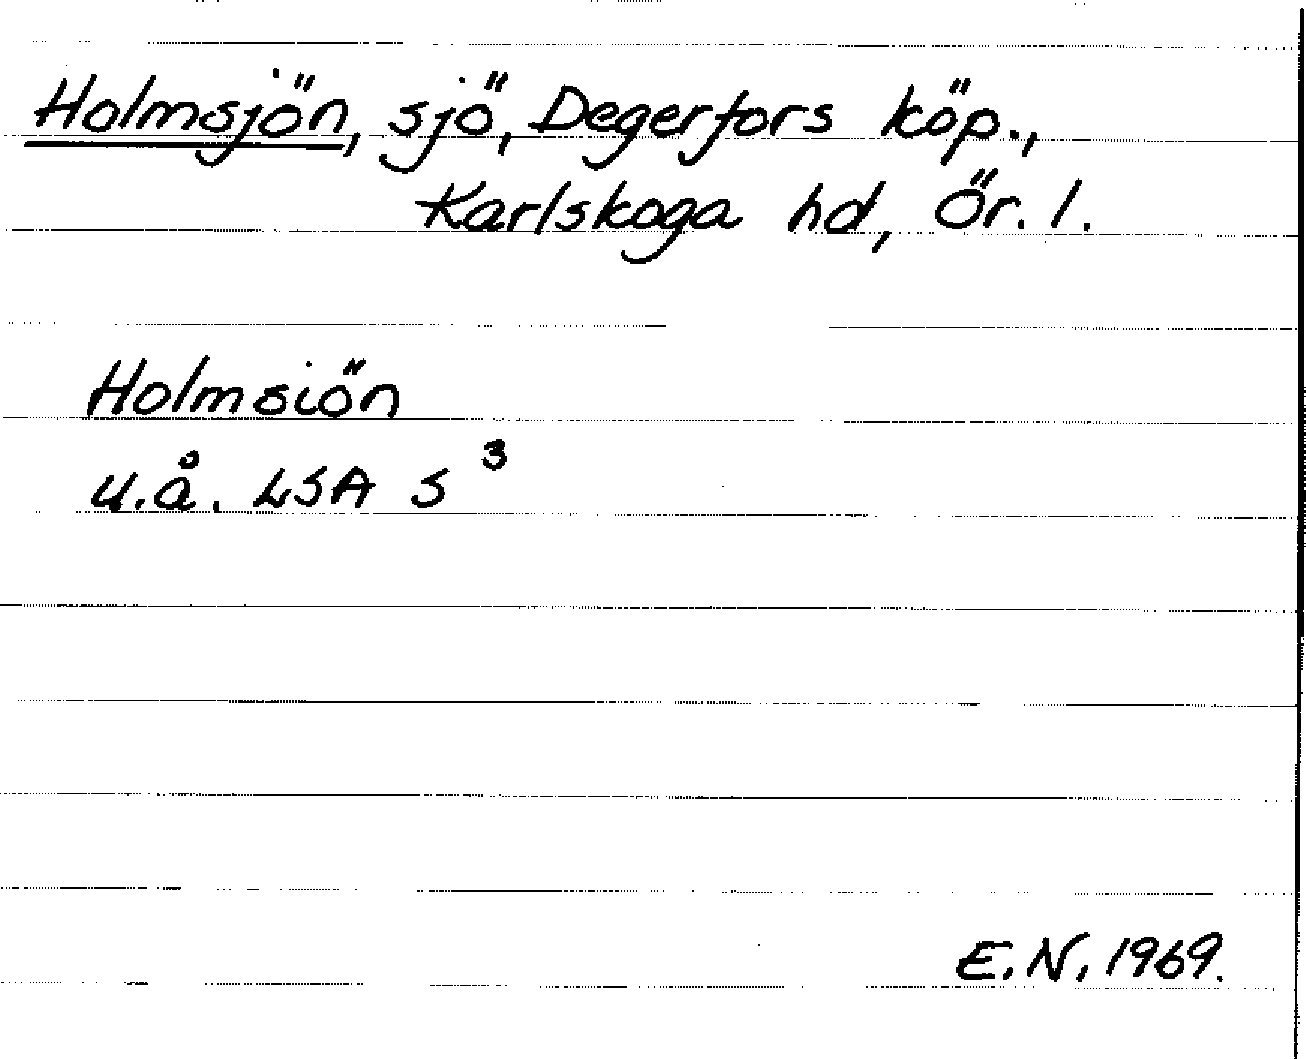 Holmsjön, sjö, Degerfors köp.,
Karlskoga hd, Ör. l.
Holmsiön
u.å. LSA S 3
E.N. 1969.